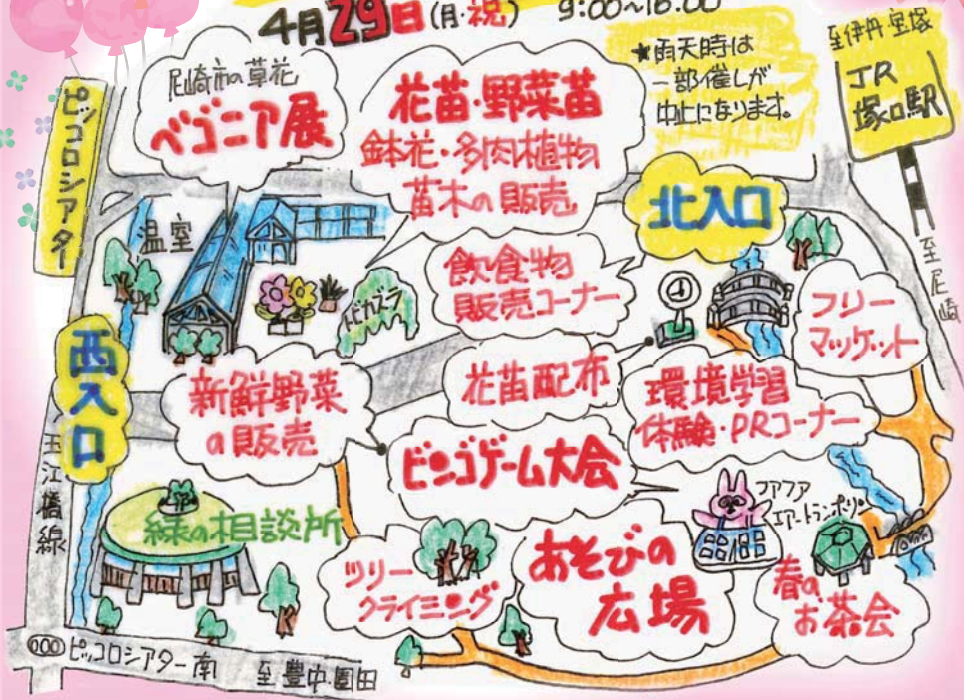 4月29日(月・祝) 9:00~16:00
★雨天時は
一部催しが
中止になります。
至伊丹・宝塚
JR
塚口駅
至尼崎
ピッコロシアター
尼崎市の草花
ベゴニア展
花苗・野菜苗
鉢花・多肉植物
苗木の販売
北入口
温室
飲食物
販売コーナー
フリー
マッケット
西入口
新鮮野菜
の販売
花苗配布
環境学習
体験・PRコーナー
ビンゴゲーム大会
玉江橋線
緑の相談所
ファファ
エアートランポリン
ツリー
クライミング
あそびの
広場
春の
お茶会
ピッコロシアター南
至豊中・園田